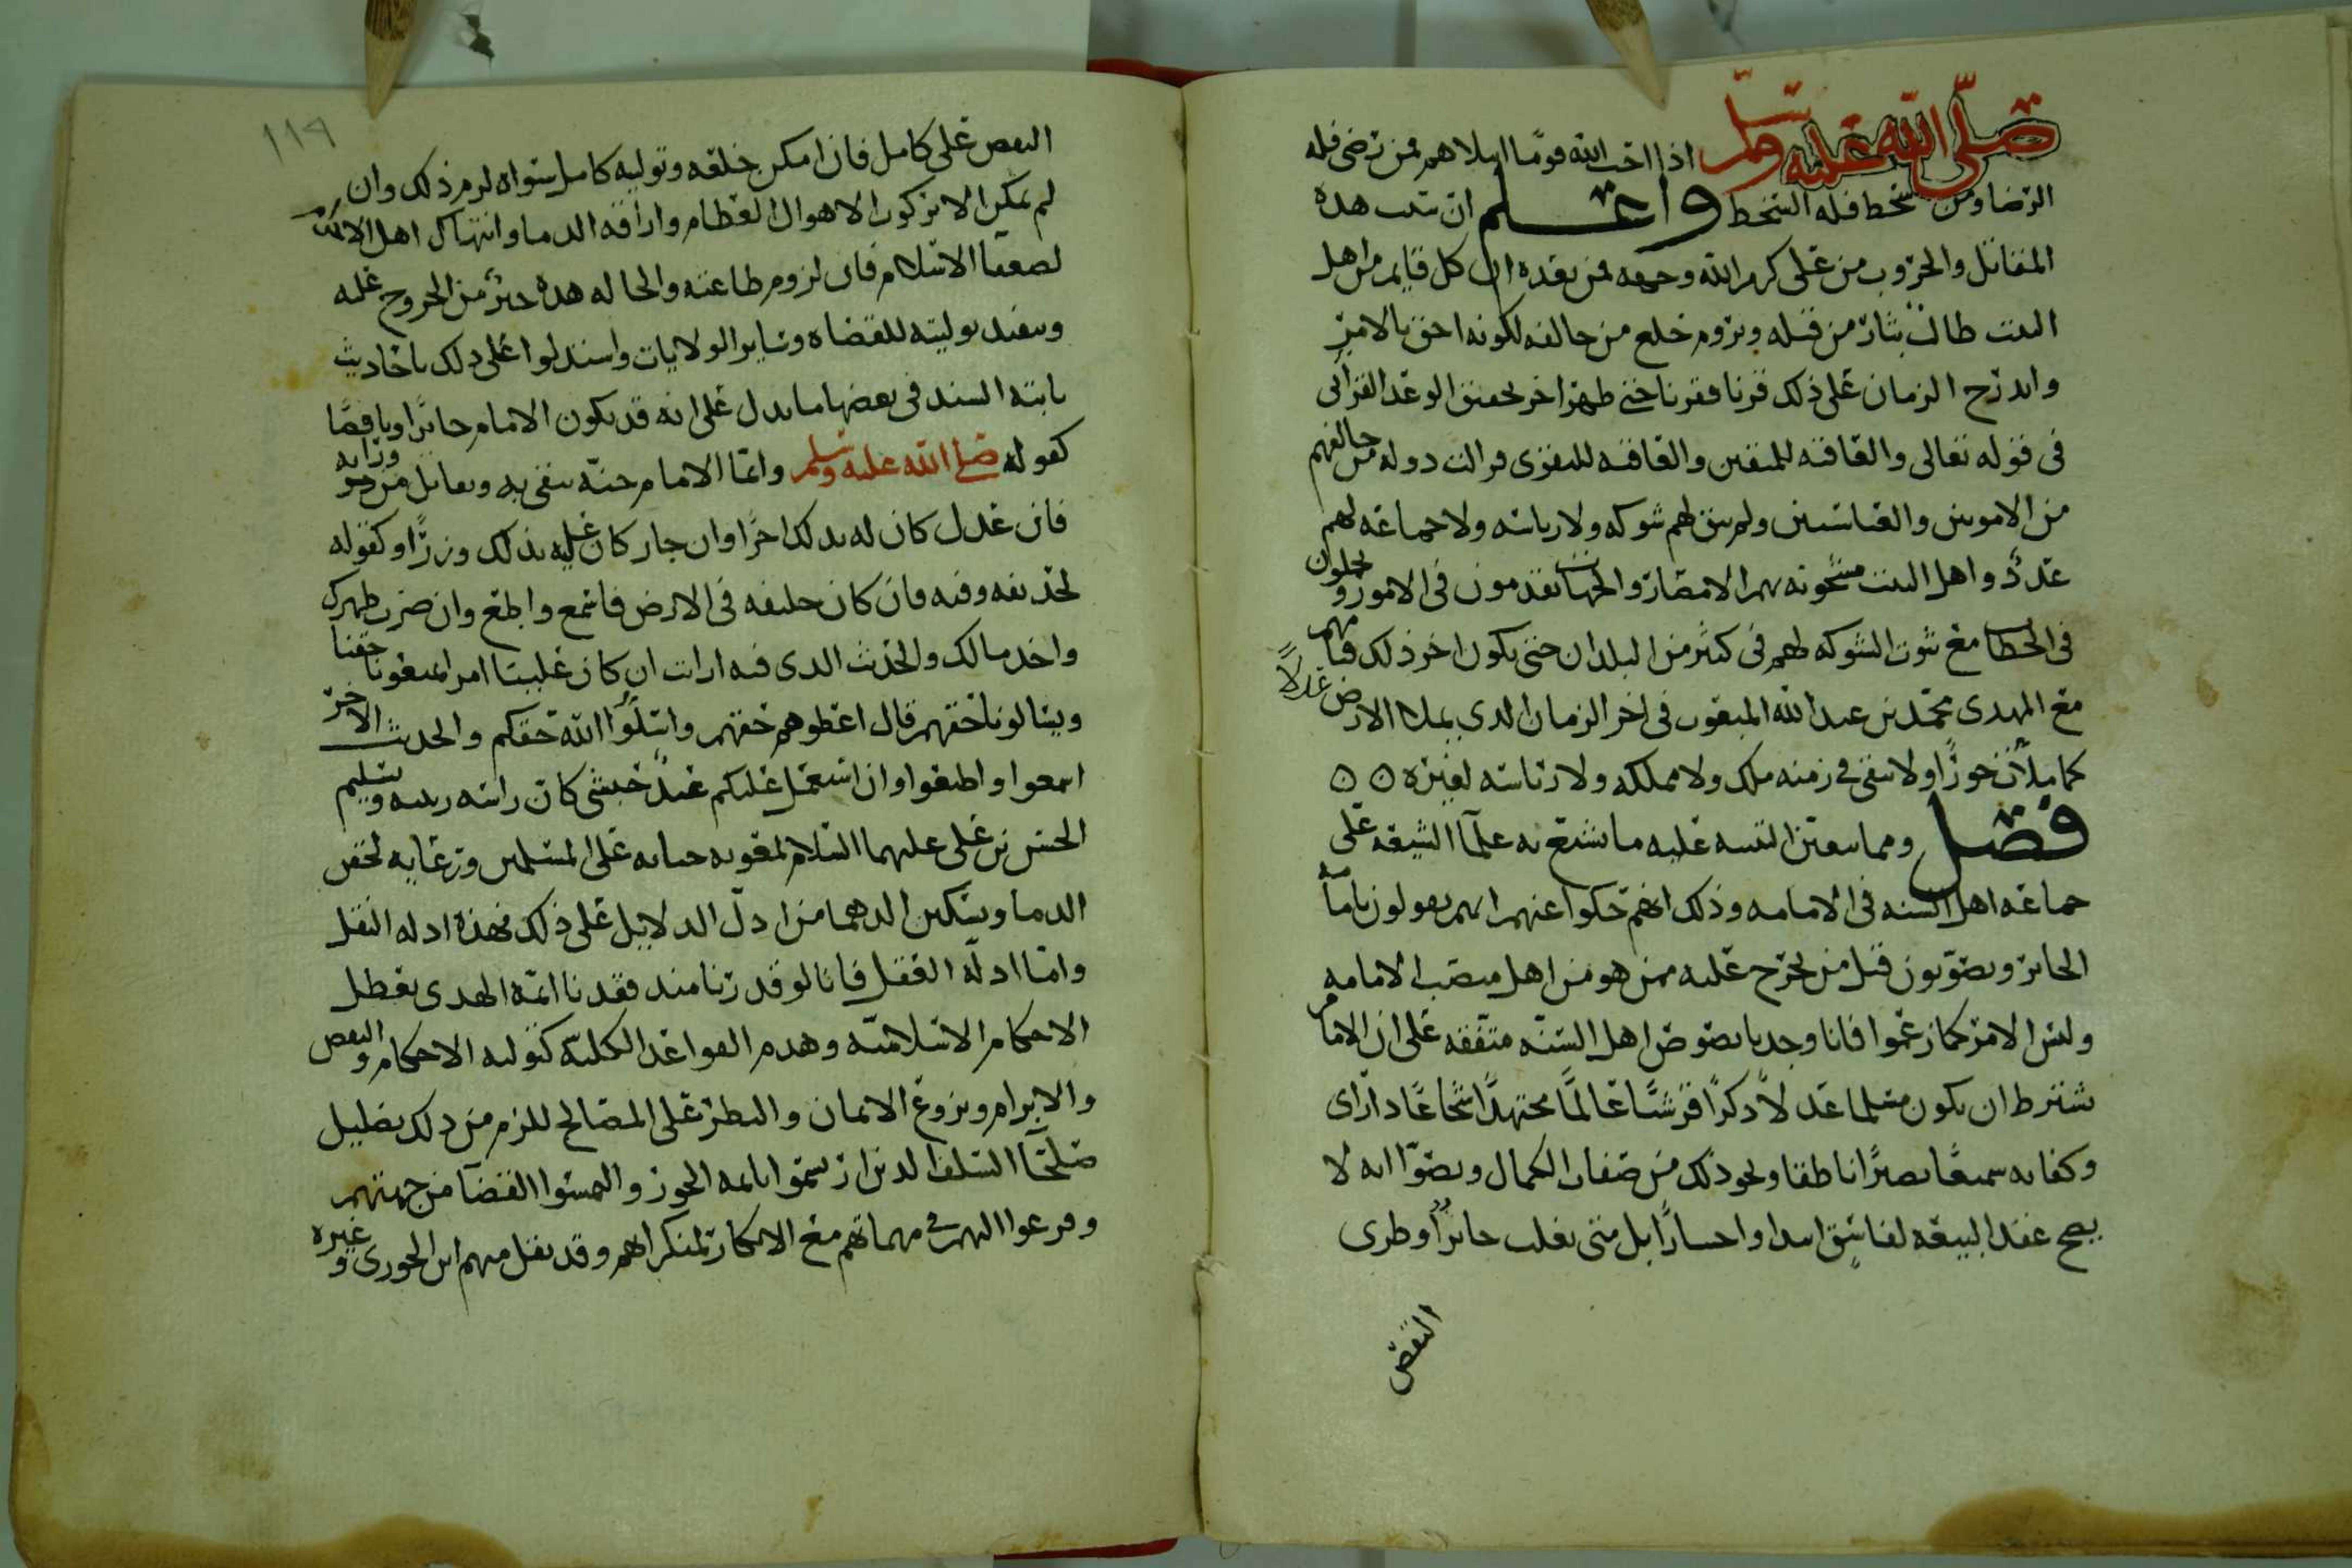 صلى الله عليه وسلم اذا احب الله قوما ابتلاهم فمن رضى فله
الرضا ومن سخط فله السخط واعلم ان سبب هذه
المقاتل والحروب من على كرم الله وجهه فمن بعده ان كل قايم من اهل
البيت طالب بثار من قبله ويروم خلع من خالفه لكونه احق بالامر
واندرج الزمان على ذلك قرنا فقرنا حتى ظهر اخر تحقيق الوعد القرآنى
فى قوله تعالى والعاقبه للمتقين والعاقبه للتقوى فزالت دوله من خالفهم
من الامويين والعباسيين ولم يبق لهم شوكه ولا رياسه ولا جماعه لهم
عدد واهل البيت مشحونه بهم الامصار والجهات يتقدمون فى الامور ويحلون
فى الخطا مع ثبوت الشوكه لهم فى كثير من البلدان حتى يكون اخر ذلك قيامهم
مع المهدى محمد بن عبد الله المبعوث فى اخر الزمان الذى يملا الارض عدلا
كما ملأت جورا ولا يبقى فى زمنه ملك ولا مملكه ولا رئاسه لغيره ٥ ٥
فصل ومما يتعين التنبيه عليه ما يشنع به علمآ الشيعه على
جماعه اهل السنه فى الامامه وذلك انهم حكوا عنهم انهم يقولون بامامه
الجائر ويصوبون قتل من يخرج عليه ممن هو من اهل منصب الامامه
وليس الامر كما زعموا فانا وجدنا نصوص اهل السنه متفقه على ان الامام
يشترط ان يكون مسلما عدلا ذكرا قرشيا عالما مجتهدا شجاعا ذا راى
وكفايه سميعا بصيرا ناطقا ونحو ذلك من صفات الكمال ونصوا انه لا
يصح عقد البيعه لفاسق ابتدا واختيارا بل متى تغلب جائرا وطرى
النقص
١١٩
النقص على كامل فان امكن خلعه وتوليه كامل سواه لزم ذلك وان
لم يمكن الا بركوب الاهوال العظام واراقه الدما وانتهاك اهل الاسلام
لضعفآ الاسلام فان لزوم طاعته والحاله هذه خير من الخروج عليه
وينفذ توليته للقضاه وساير الولايات واستدلوا على ذلك باحاديث
ثابته السند فى بعضها ما يدل على انه قد يكون الامام جائرا وناقصا
كقوله صلى الله عليه وسلم وانما الامام جنه يتقى به ويقاتل من ورآيه
فان عدل كان له بذلك اجرا وان جار كان عليه بذلك وزرا وكقوله
لحذيفه وفيه فان كان خليفه فى الارض فاسمع واطع وان ضرب ظهرك
واخذ مالك والحديث الذى فيه ارايت ان كان علينا امرا يمنعونا حقنا
ويسالونا حقهم قال اعطوهم حقهم واسئلوا الله حقكم والحديث الاخر
اسمعوا واطيعوا وان استعمل عليكم عبد حبشى كان راسه زبيبه وتسليم
الحسن بن على عليهما السلام لمعويه حياته على المسلمين ورعايه لحقن
الدما وتسكين الدهما من ادل الدلايل على ذلك فهذه ادله النقل
واما ادله العقل فانا لو قدرنا منذ فقدنا ائمه الهدى تعطل
الاحكام الاسلاميه وهدم القواعد الكليه كتوليه الاحكام والنقض
والابرام ونزوع الايمان والنظر على المصالح للزم من ذلك تضليل
صلحآ السلف الذين ارتسموا بايمه الجور والتمسوا القضآ من جهتهم
وفزعوا اليهم فى مهماتهم مع الانكار لمنكراهم وقد نقل منهم ابن الجوزى وغيره